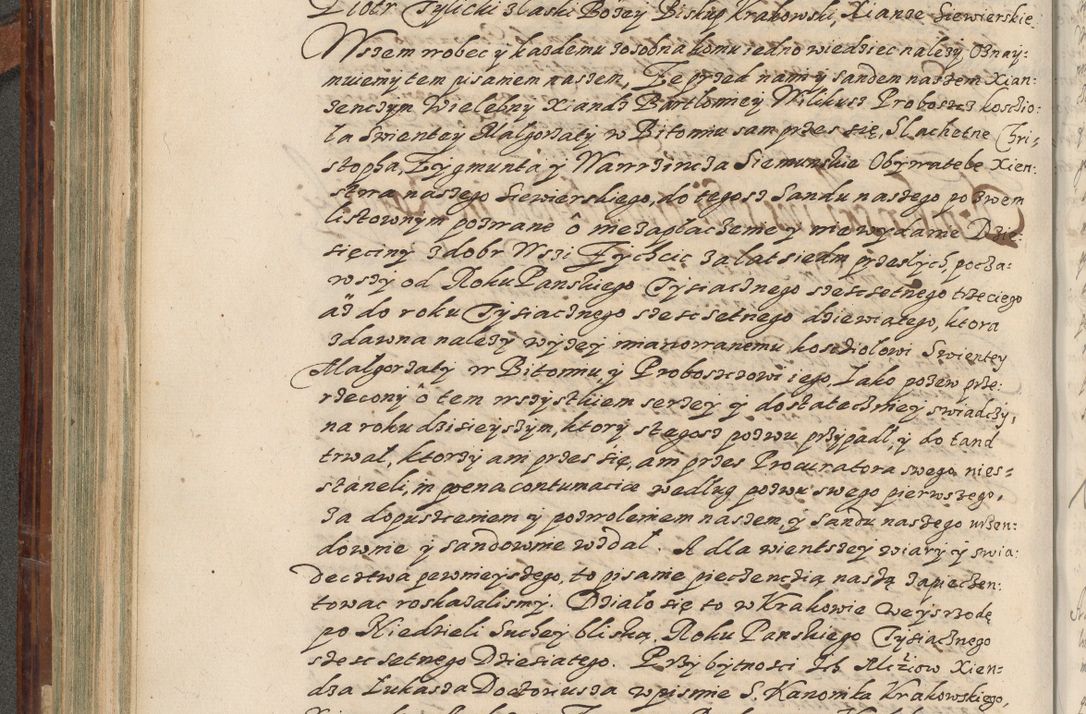 Piotr Tylicki z łaski Bozey Biskup Krakowski, Xiąnze Siewierskie
Wszem wobec y kazdemu zosobna komu iedno wiedziec nalezy Oznay=
muiemy tem pisaniem naszem, Ze przed nami y sandem naszem Xian=
zenczym Wielebny Xiandz Bartłomiey Wilikusz Proboszcz koscio=
ła Swientey Małgorzaty w Bitomiu sam przes się, Slachetne Chri=
stopha, Zygmunta y Wawrzincza Siemunskie Obywatele Xien=
stwa naszego Siewierskiego, do tegosz Sandu naszego pozwem
listownym pozwane o niezapłaczenie y niewydanie Dzie=
sięciny z dobr Wszi Zychcic za lat siedm przeszłych, pocza=
wszy od Roku Panskiego Tysiącznego szescsetnego trzeciego
aż do roku Tysiącznego szescsetnego dziewiątego, ktora
zdawna nalezy wyzey mianowanemu kosciołowi Swientey
Małgorzaty w Bitomiu, y Proboszczowi iego, Jako pozew prze=
rzeczony o tem wszystkiem szerzey y dostateczniey swiadczy,
na roku dzisieyszym, ktory z tegosz pozwu przypadł, y do tand
trwał, ktorzy ani przes się, ani przes Procuratora swego nies=
taneli, in poena contumaciae według pozwu swego pierwszego,
za dopuszczeniem y pozwoleniem naszem, y Sandu naszego urzen=
downie y sandownie wzdał. A dla wientszey wiary y swia=
dectwa pewnieyszego, to pisanie pieczenczią naszą zapieczen=
towac roskazalismy. Działo się to w Krakowie we yszrodę
po Niedzieli Suchey bliską, Roku Panskiego Tysiącznego
szescsetnego Dziesiątego. Przy bytnosci Ich Mżiow Xien=
dza Łukasza Doctoriusza w pismie S. Kanonika Krakowskiego,